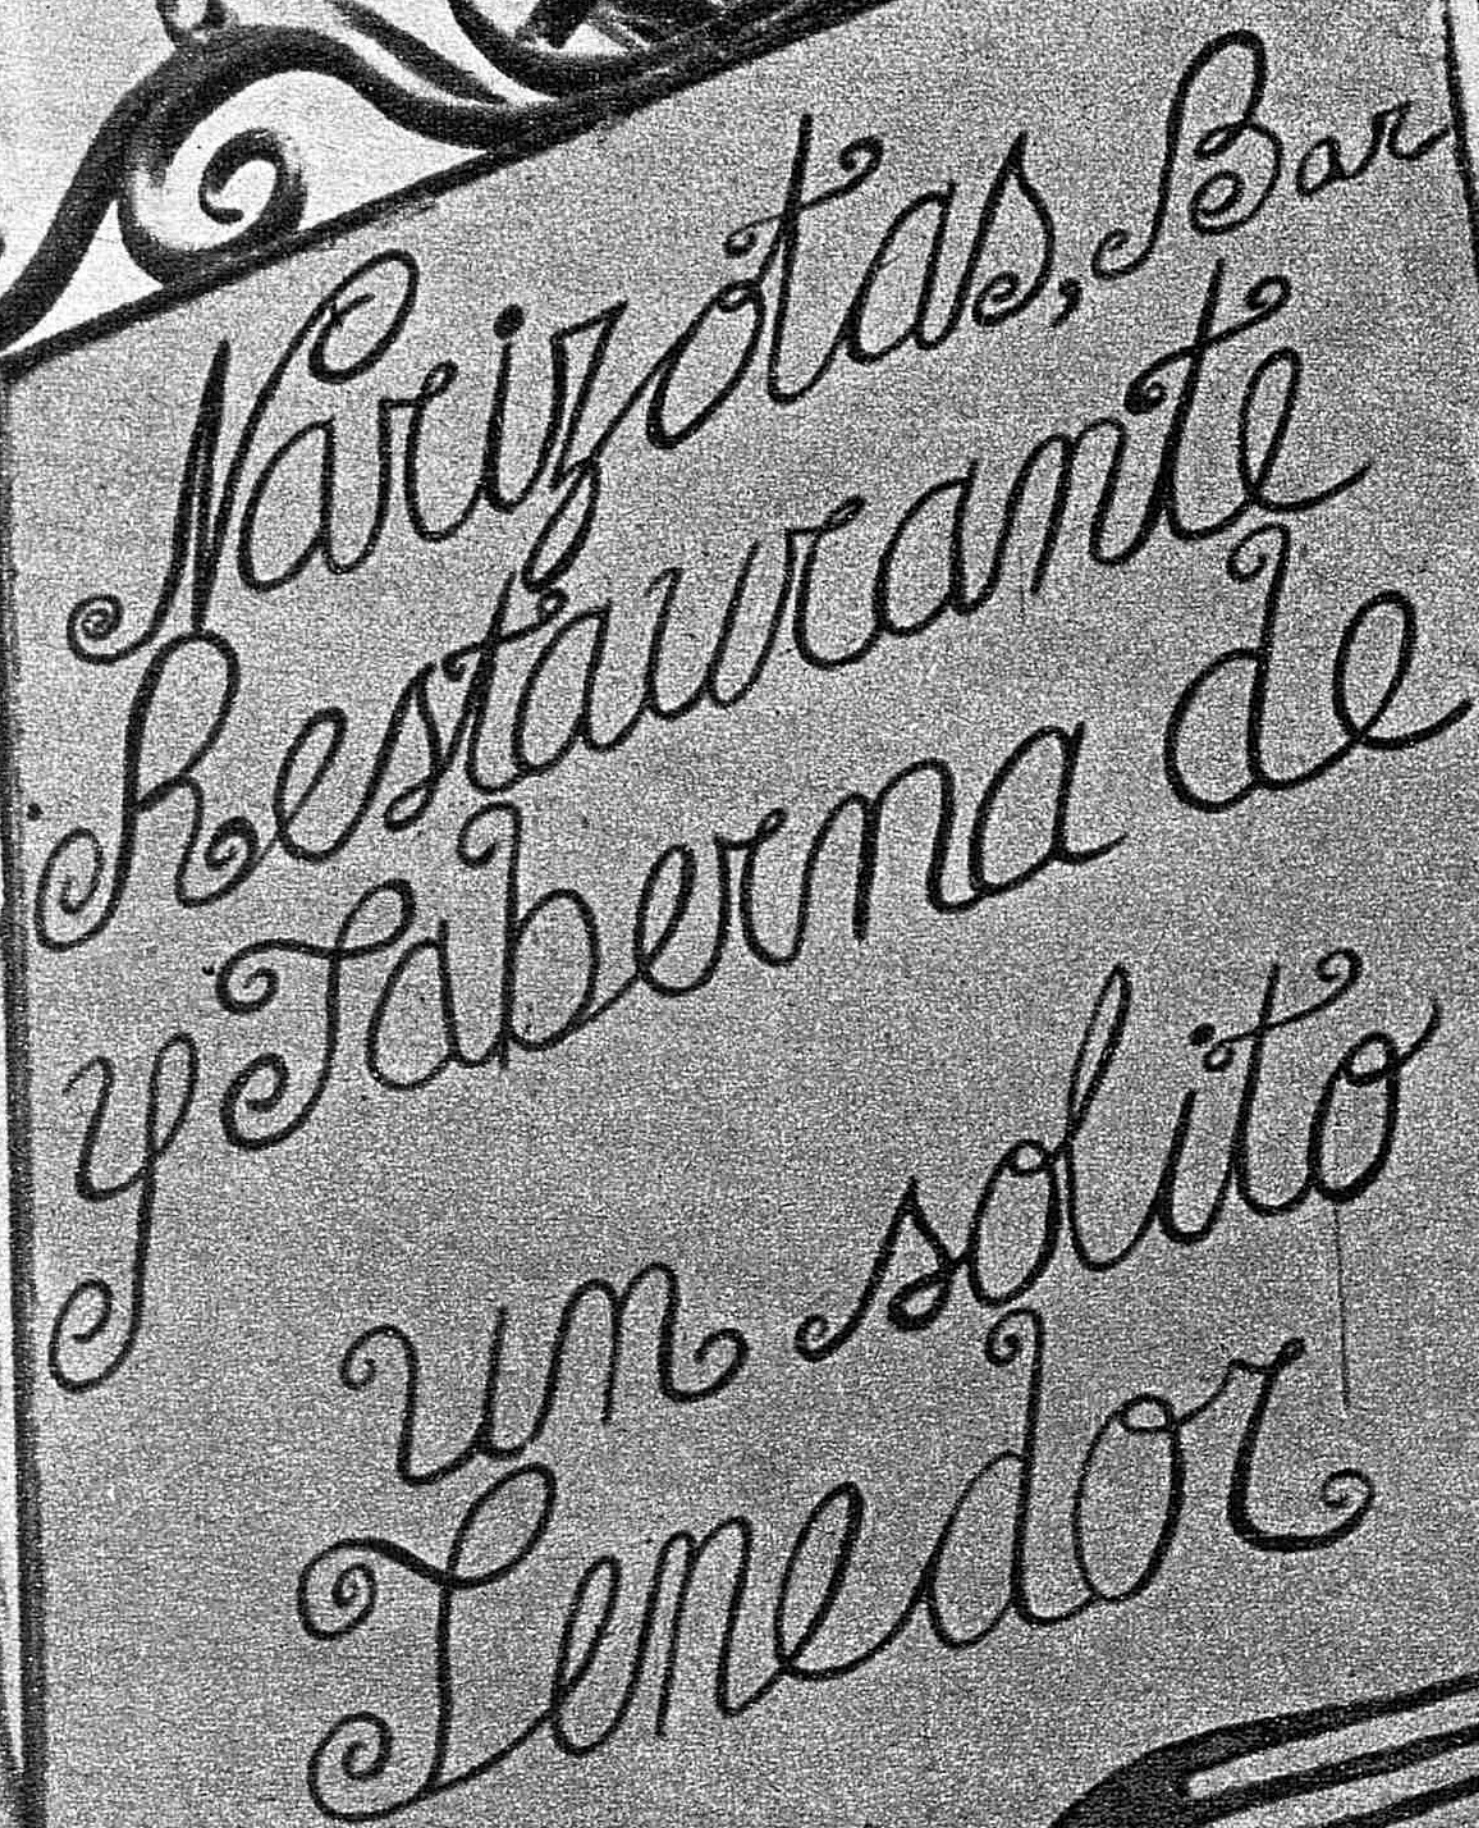 Narizotas, Bar
Restaurante
y Taberna de
un solito
Tenedor